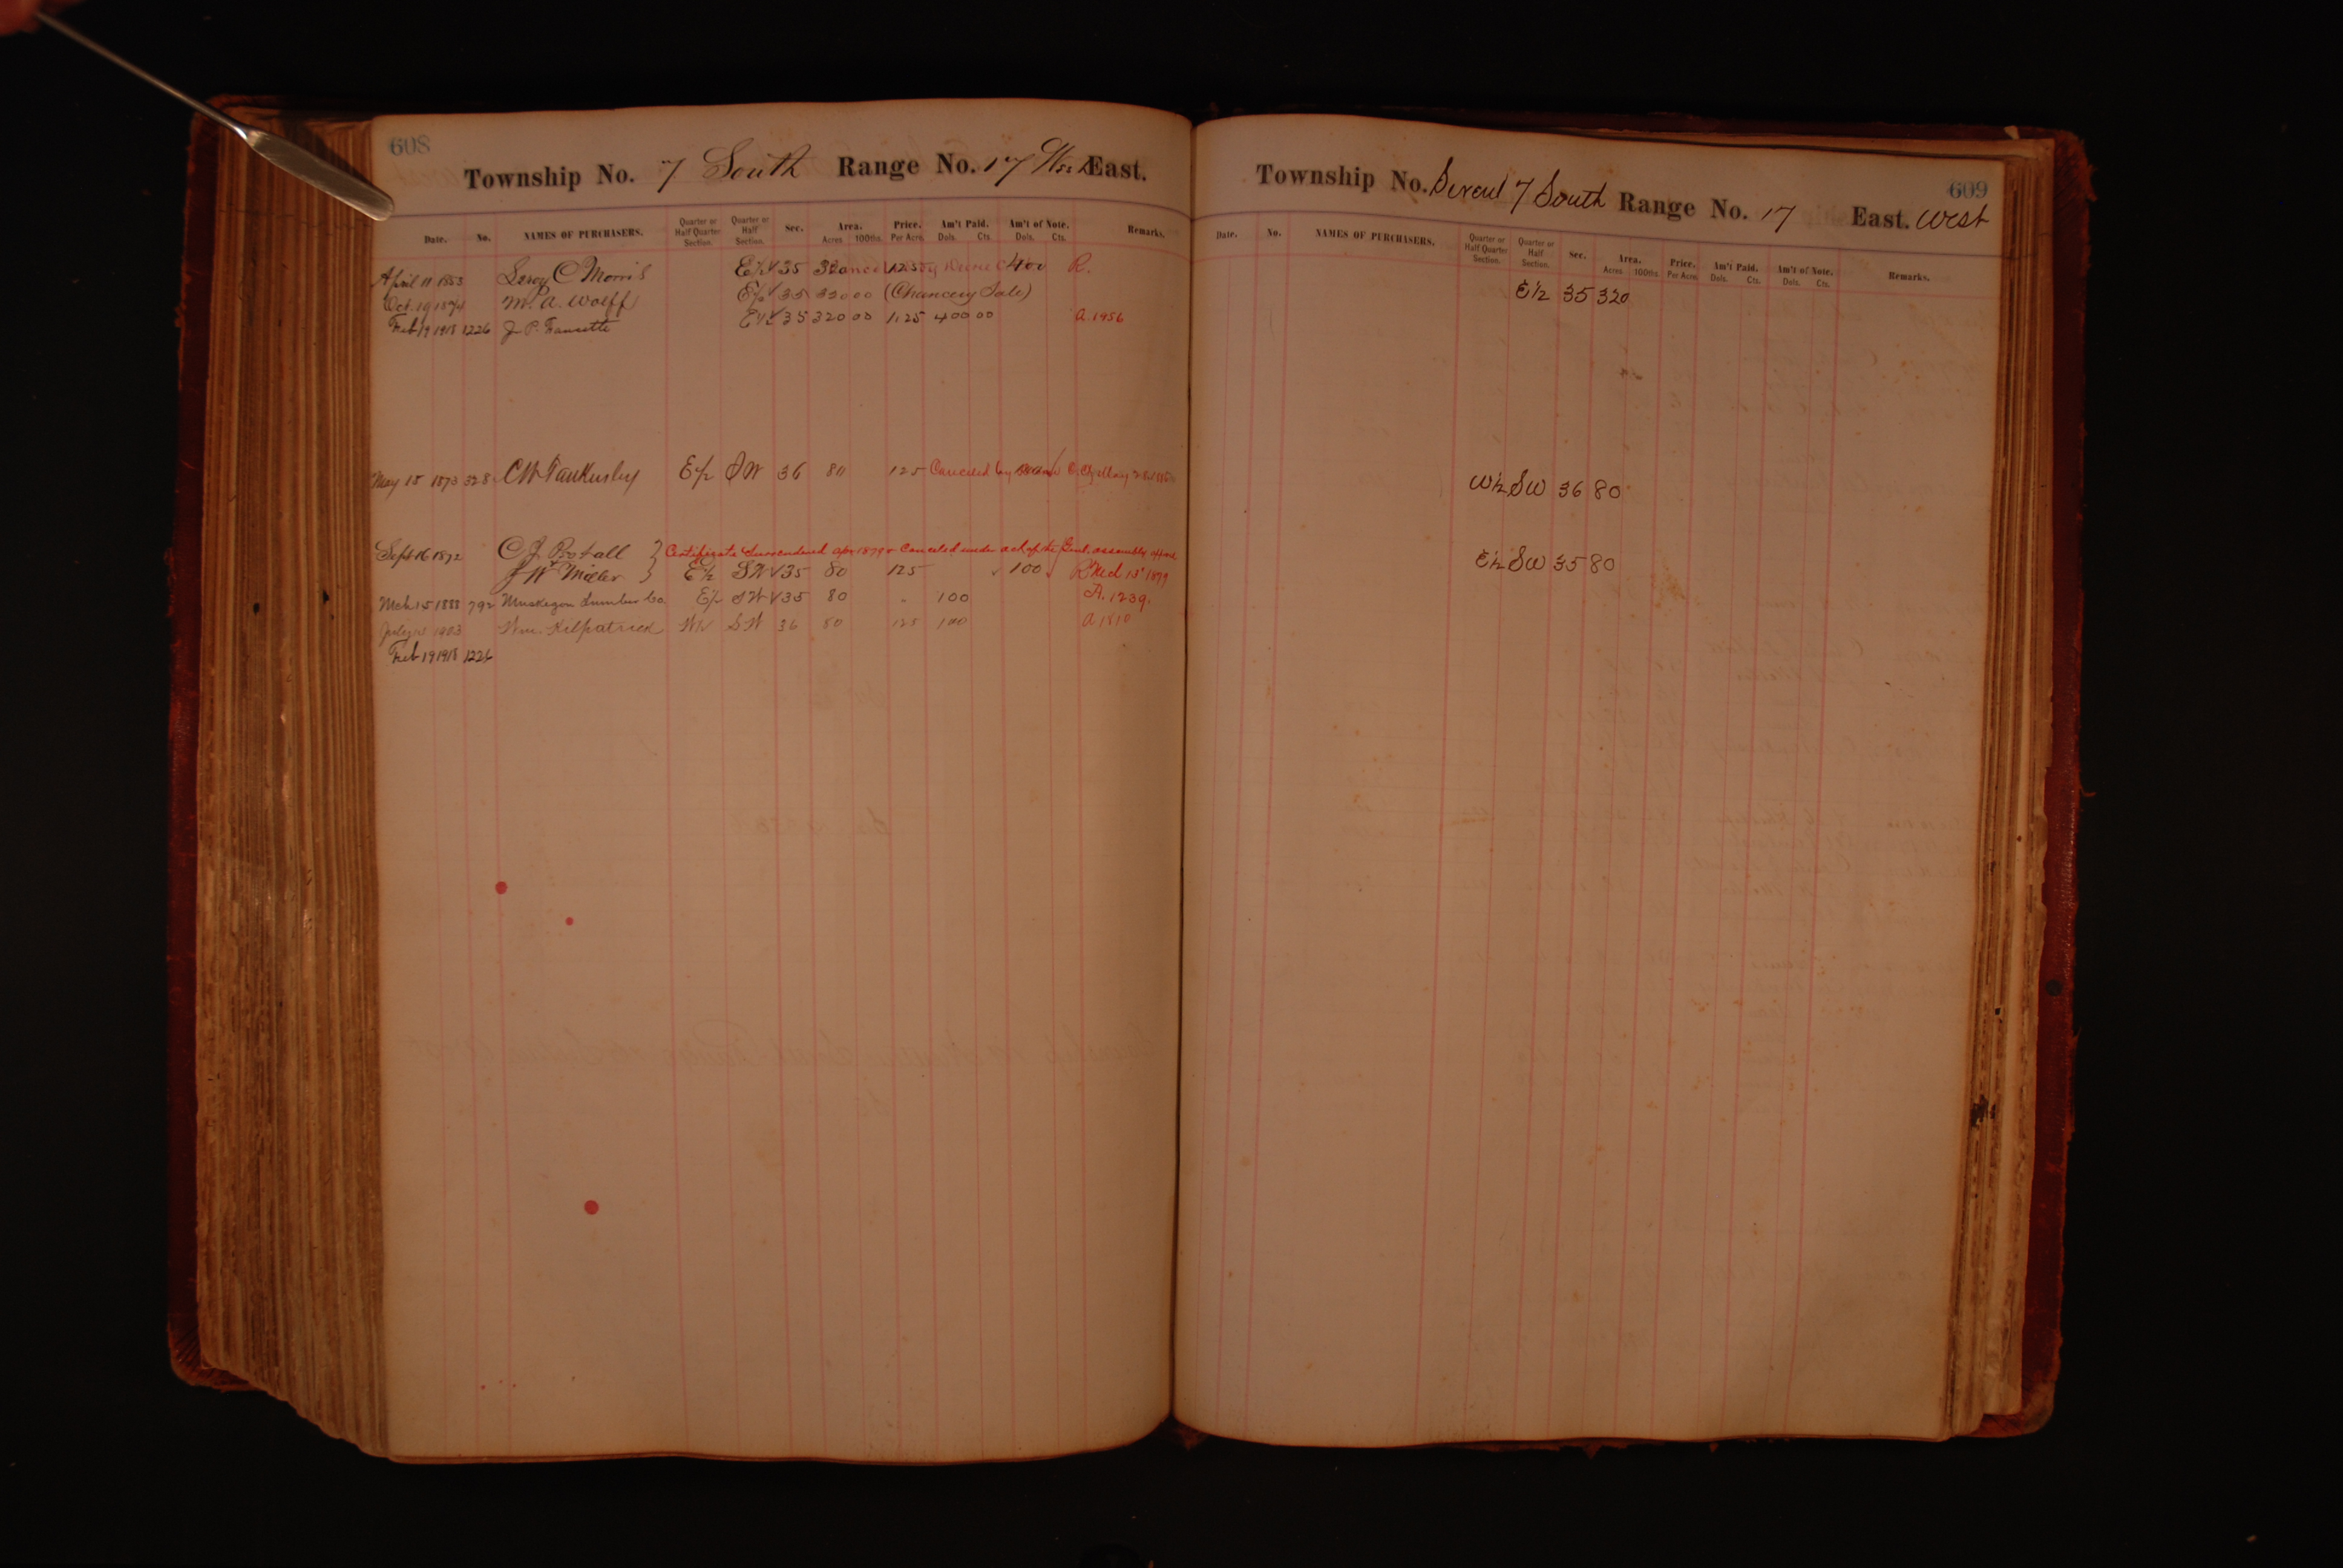 608
Township No. 7 South Range No. 17 West East.
Date. No. NAMES OF PURCHASERS. Quarter or Half Quarter Section. Quarter or Half Section. Sec. Area. Acres 100ths. Price. Per Acre. Am't Paid. Dols. Cts. Am't of Note. Dols. Cts. Remarks.
April 11 1853 Leroy C Morris E½ 35 320 125 400 R.
Oct. 19 1874 M. A. Wolff E½ 35 320 00 (Chancery Sale)
Feb 19 1918 1226 J. P. E½ 35 320 00 1.25 400 00 A. 1956
May 15 1873 328 CW Tankersley E½ SW 36 80 125 Canceled by May 28
Sept 16 1872 C J Certificate Surrendered Apr 1879 & Canceled under act of the Genl. assembly
J W Miller E½ SW 35 80 125 100 R Mch 13" 1879
Mch 15 1888 792 Muskegon Lumber Co. E½ SW 35 80 " 100 A. 1239.
July 1903 Wm. Kilpatrick W½ SW 36 80 125 100 A 1810
Feb 19 1918 1226
609
Township No. Seven 7 South Range No. 17 East. West
Date. No. NAMES OF PURCHASERS. Quarter or Half Quarter Section. Quarter or Half Section. Sec. Area. Acres 100ths. Price. Per Acre. Am't Paid. Dols. Cts. Am't of Note. Dols. Cts. Remarks.
E½ 35 320
W½ SW 36 80
E½ SW 35 80